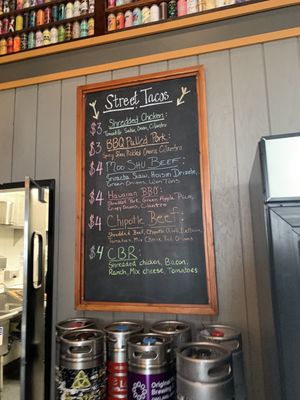 Street Tacos
$3 Shredded Chicken:
Tomatillo Salsa, Onion, Cilantro
$3 BBQ Pulled Pork:
Spicy Slaw, Pickled Onions, Cilantro
$4 Moo Shu Beef:
Sriracha Slaw, Hoisin Drizzle,
Green Onions, Won Tons
$4 Hawaiian BBQ:
Shredded Pork, Green Apple Pico,
Crispy Onions, Cilantro
$4 Chipotle Beef:
Shredded Beef, Chipotle Aioli, Lettuce,
Tomatoes, Mix Cheese, Red Onions
$4 CBR:
Shredded chicken, Bacon,
Ranch, Mix cheese, Tomatoes